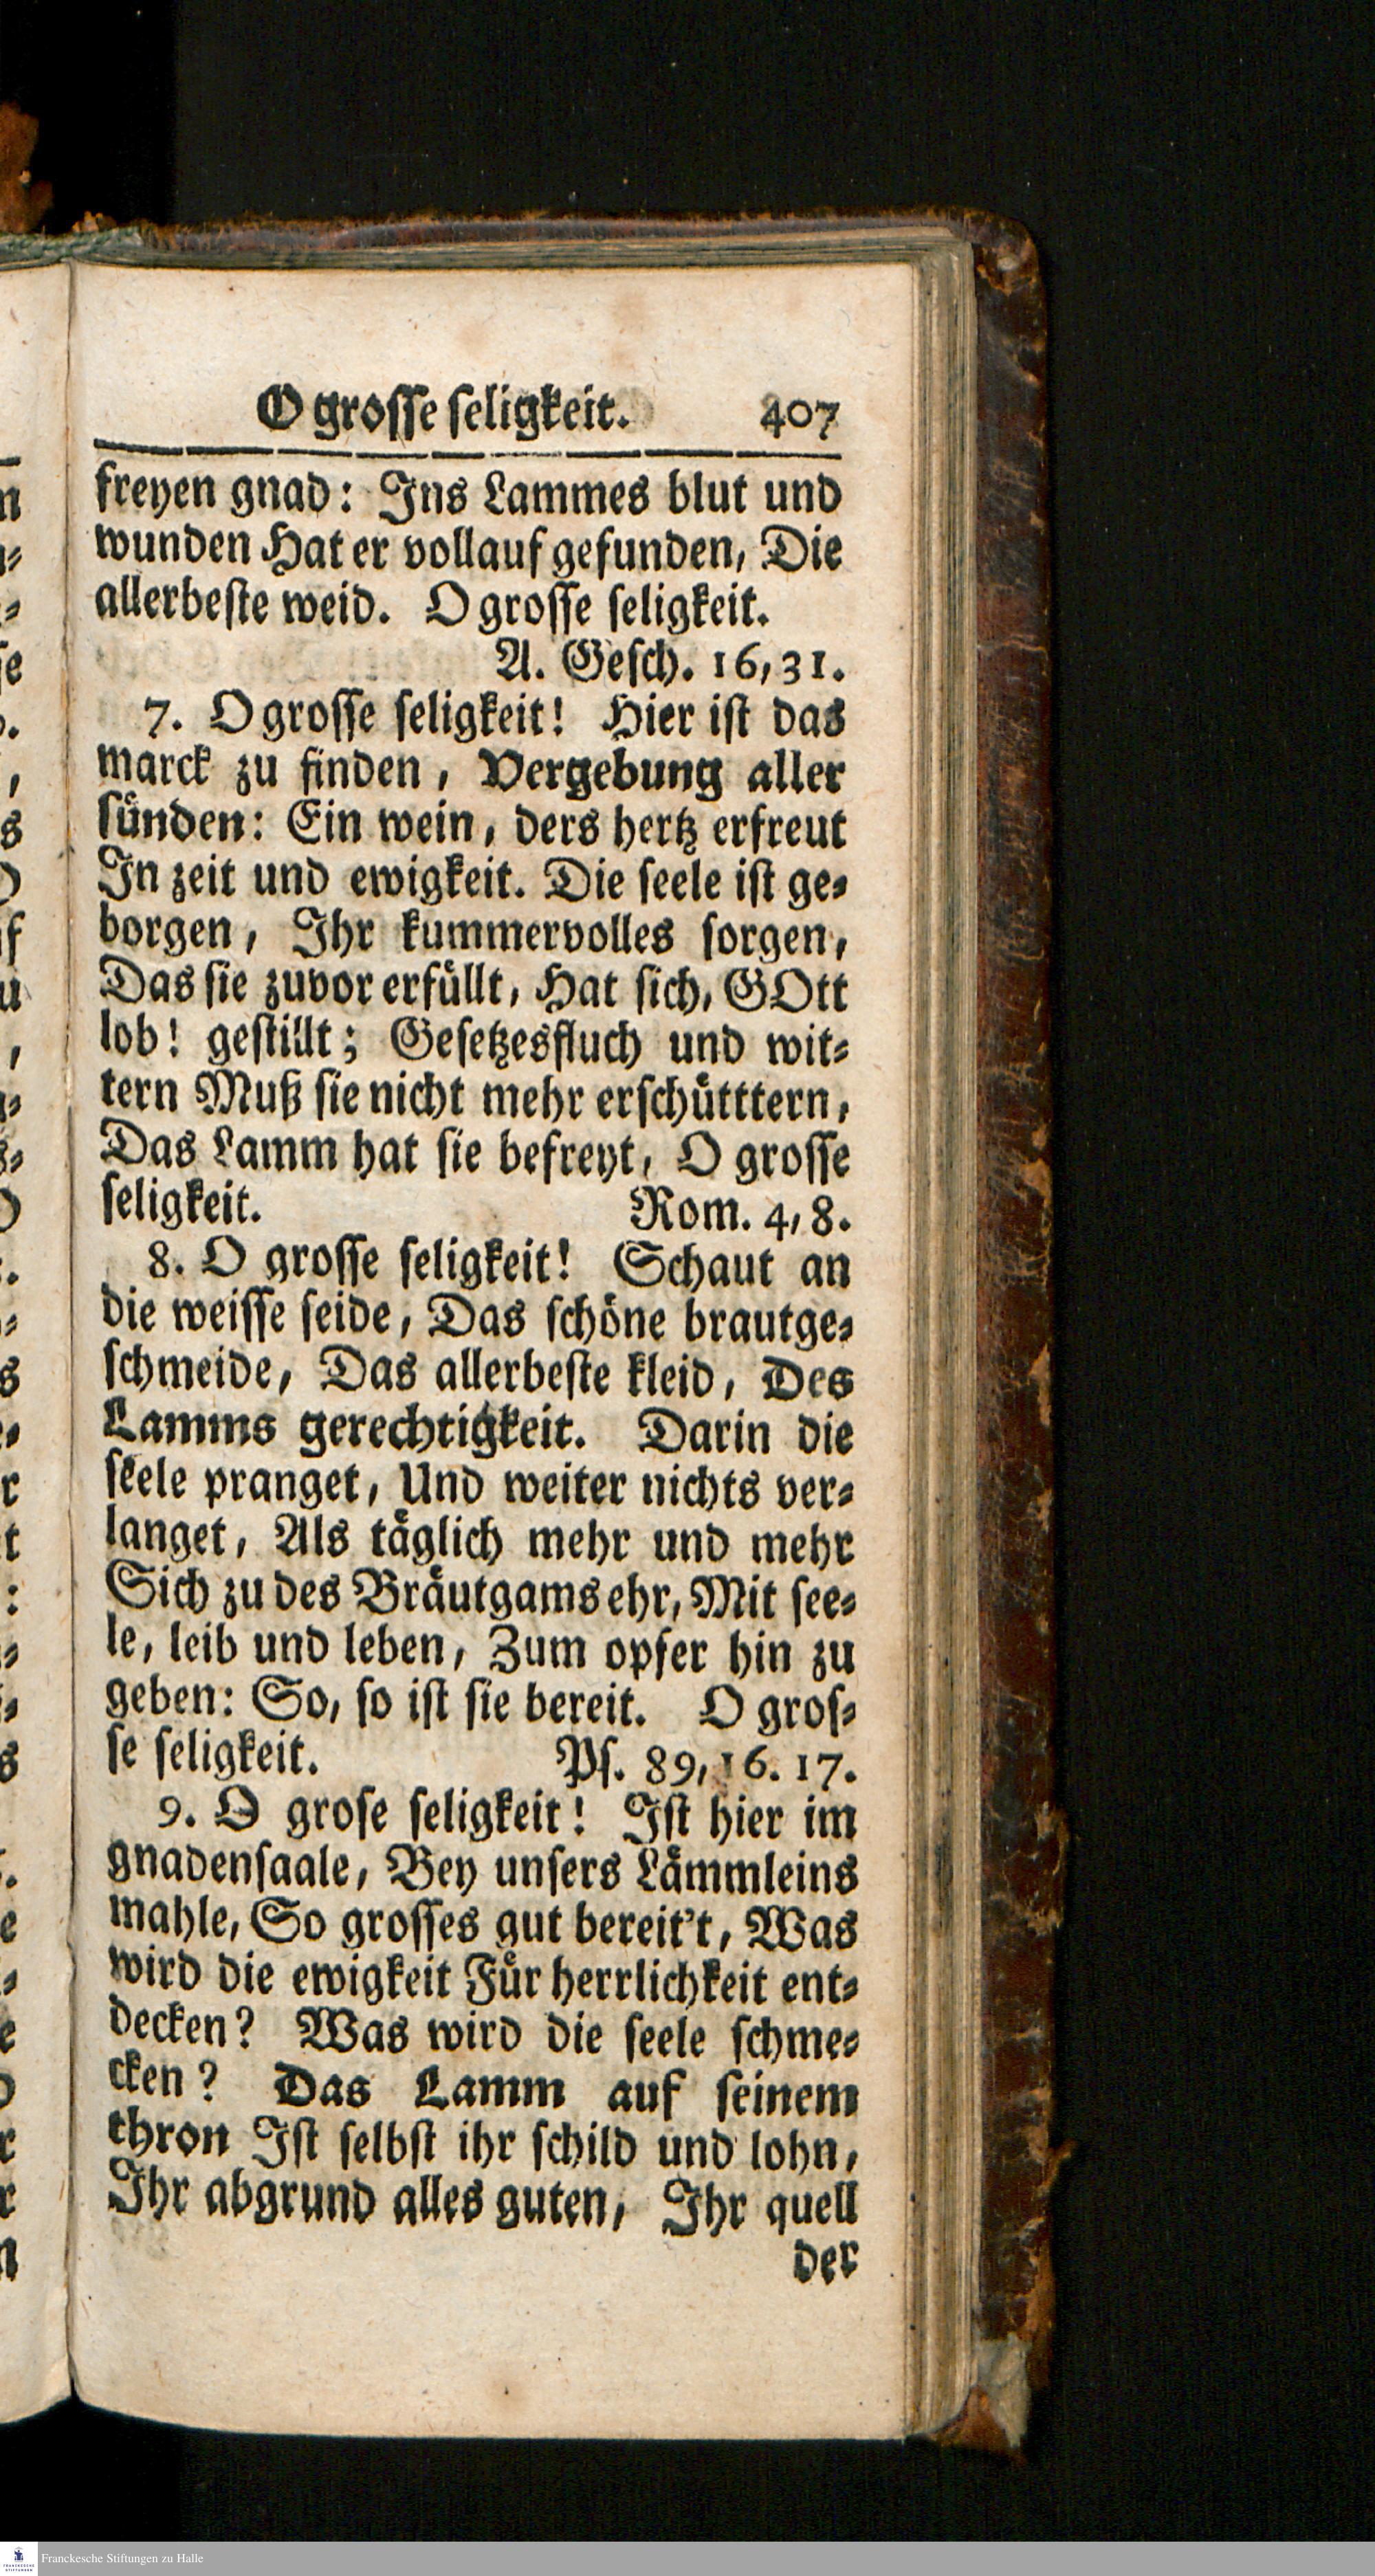 O grosse seligkeit. 407
freyen gnad: Ins Lammes blut und
wunden Hat er vollauf gefunden, Die
allerbeste weid. O grosse seligkeit.
A. Gesch. 16, 31.
7. O grosse seligkeit! Hier ist das
marck zu finden, Vergebung aller
sünden: Ein wein, ders hertz erfreut
In zeit und ewigkeit. Die seele ist ge-
borgen, Ihr kummervolles sorgen,
Das sie zuvor erfüllt, Hat sich, GOtt
lob! gestillt; Gesetzesfluch und wit-
tern Muß sie nicht mehr erschütttern,
Das Lamm hat sie befreyt, O grosse
seligkeit. Rom. 4, 8.
8. O grosse seligkeit! Schaut an
die weisse seide, Das schöne brautge-
schmeide, Das allerbeste kleid, Des
Lamms gerechtigkeit. Darin die
seele pranget, Und weiter nichts ver-
langet, Als täglich mehr und mehr
Sich zu des Bräutgams ehr, Mit see-
le, leib und leben, Zum opfer hin zu
geben: So, so ist sie bereit. O gros-
se seligkeit. Ps. 89, 16. 17.
9. O grose seligkeit! Ist hier im
gnadensaale, Bey unsers Lämmleins
mahle, So grosses gut bereit't, Was
wird die ewigkeit Für herrlichkeit ent-
decken? Was wird die seele schme-
cken? Das Lamm auf seinem
thron Ist selbst ihr schild und lohn,
Ihr abgrund alles guten, Ihr quell
der
Franckesche Stiftungen zu Halle